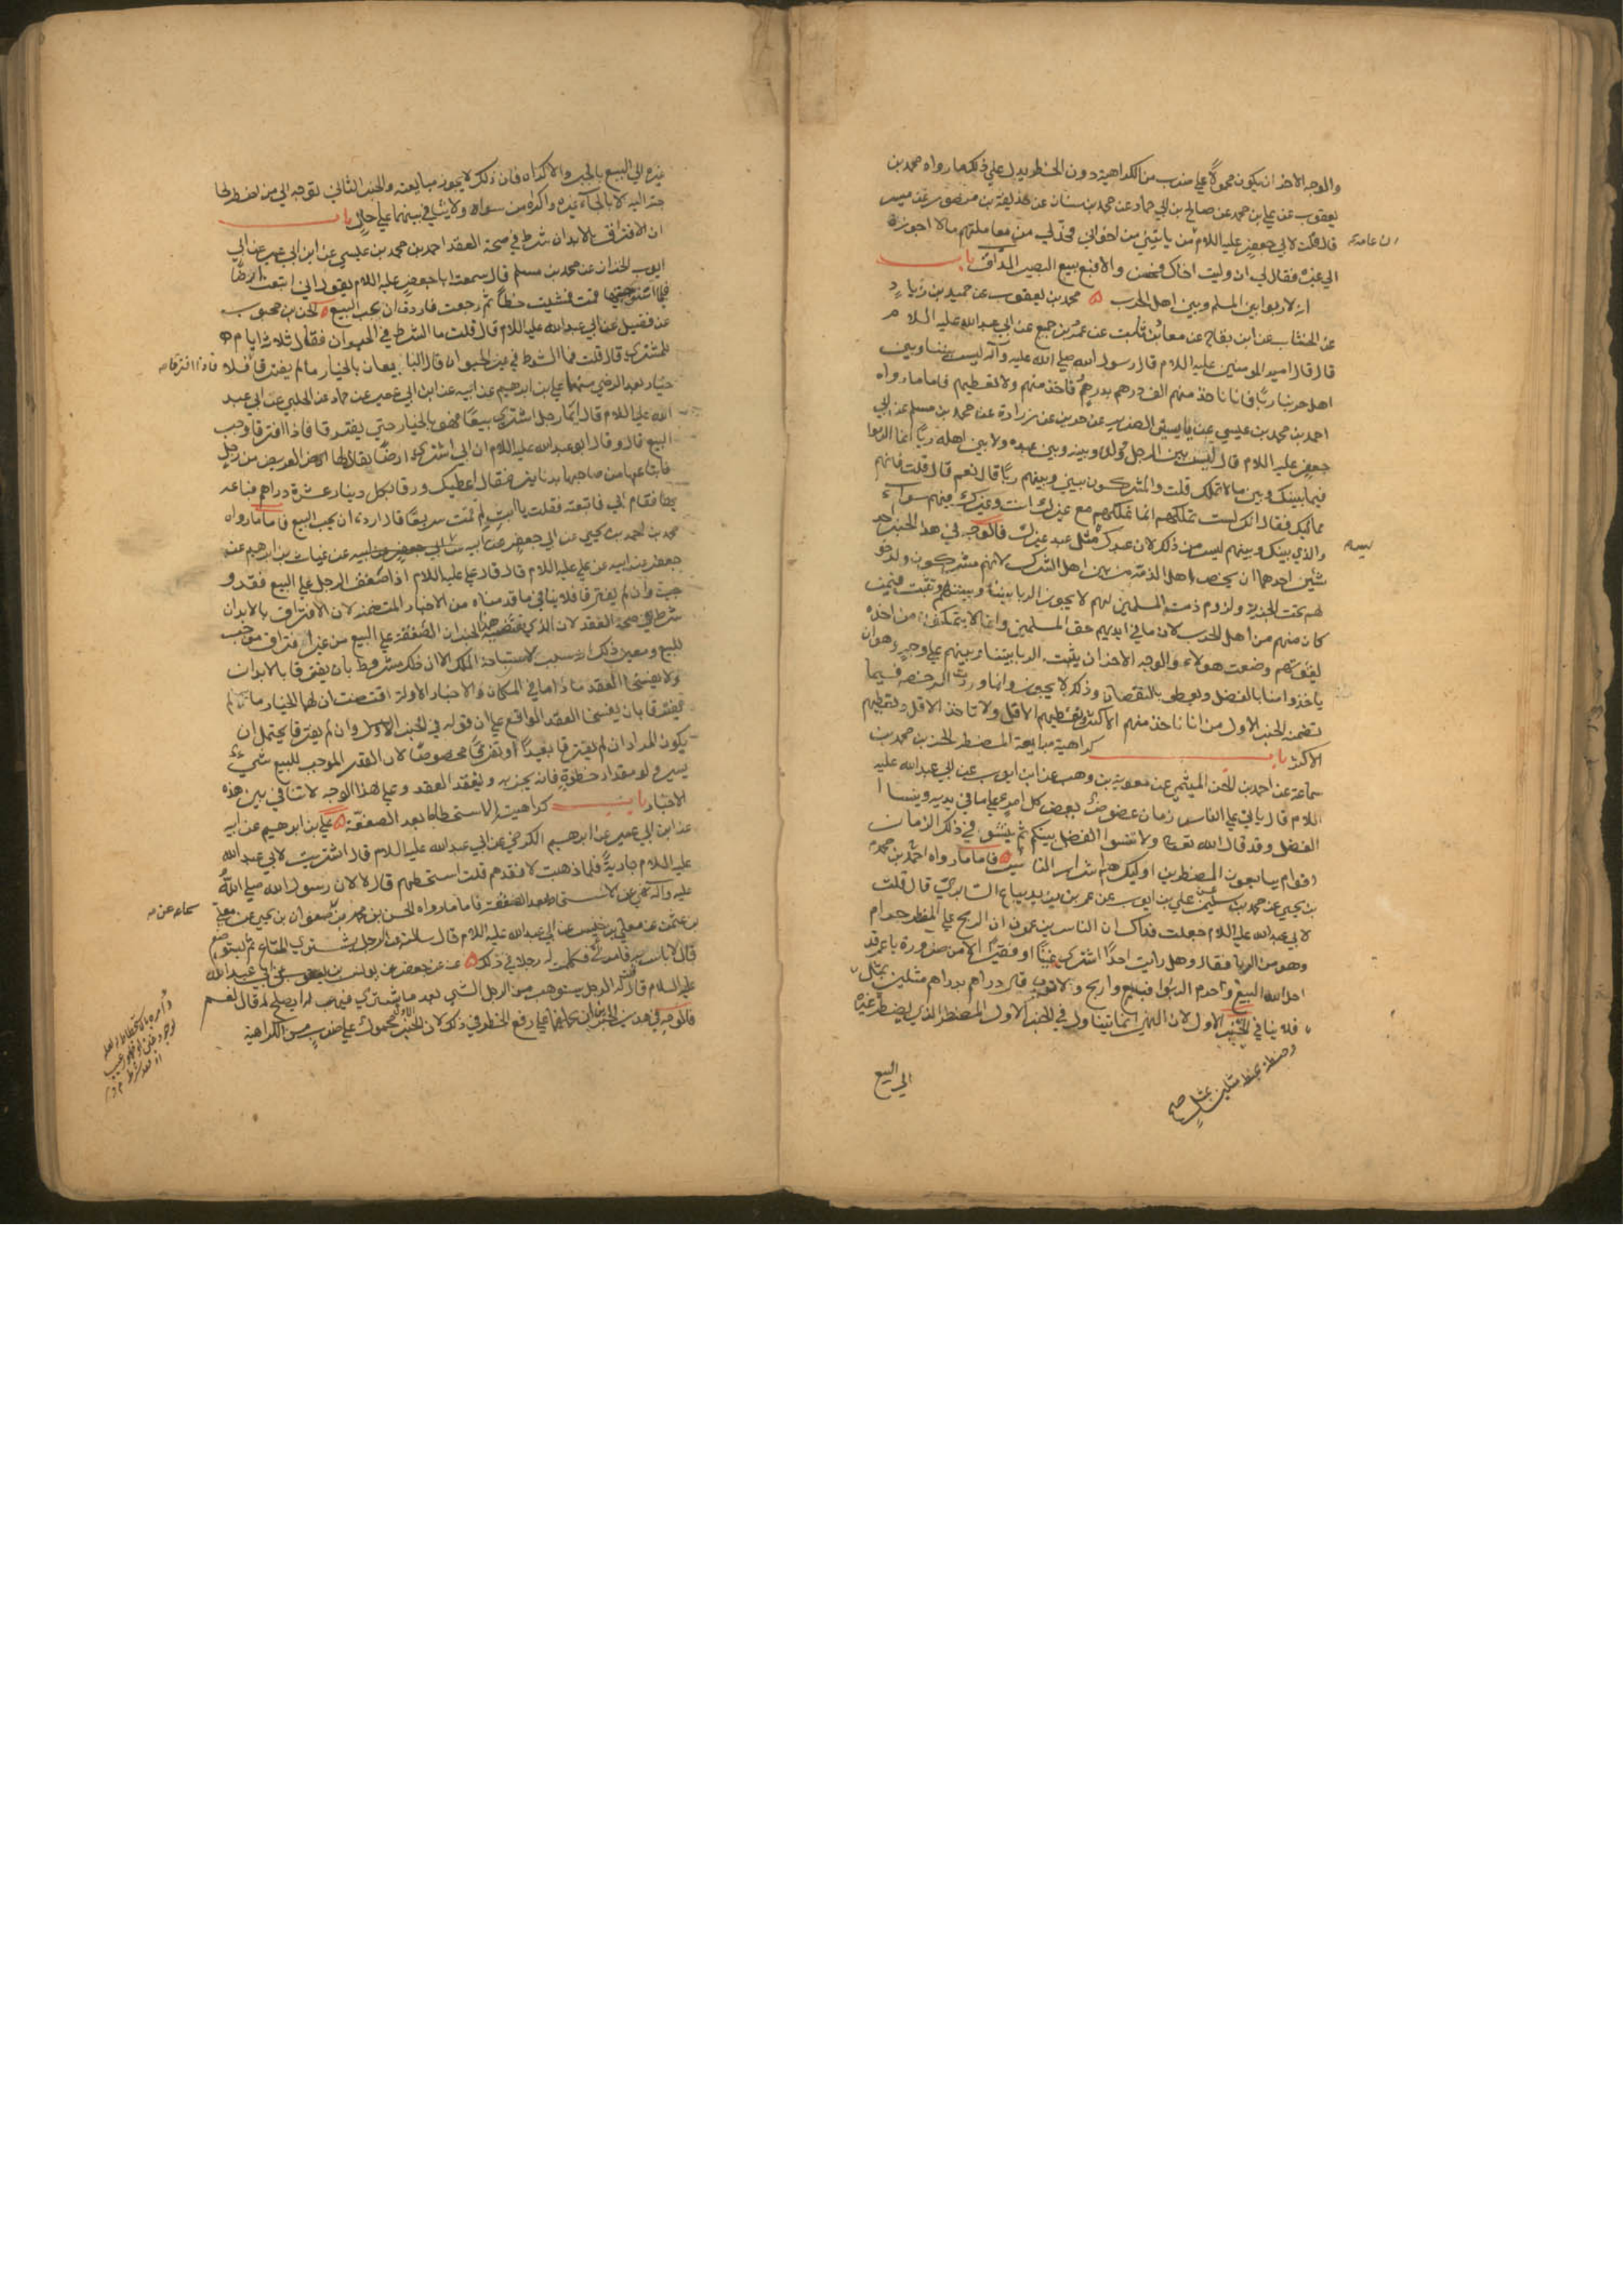 والوجه الاخر ان يكون محمولاً على ضرب من الكراهية دون الحظر يدل على ذلك ما رواه محمد بن
يعقوب عن علي بن محمد عن صالح بن ابي حماد عن محمد بن سنان عن حذيفة بن منصور عن ميسر
قال قلت لابي جعفر عليه اللام من ياتيني من اخواني فحد لي من معاملتهم مالا اجوزه
ان عامة
الي غيره فقال لي ان وليت اخاك فحسن والا فبع بيع البصير المداق باب
انه لا ربوا بين المسلم وبين اهل الحرب محمد بن يعقوب عن حميد بن زياد
عن الخشاب عن ابن بقاح عن معاذ بن ثابت عن عمرو بن جميع عن ابي عبد الله عليه السلام
قال قال امير المومنين عليه اللام قال رسول الله صلي الله عليه وآله ليس بيننا وبين
اهل حربنا ربا فانا ناخذ منهم الف درهم بدرهم فناخذ منهم ولا نعطيهم فاما ما رواه
احمد بن محمد بن عيسي عن ياسين الضرير عن حريز عن زرارة عن محمد بن مسلم عن ابي
جعفر عليه اللام قال ليس بين الرجل وولده وبينه وبين عبده ولا بين اهله ربا انما الربوا
فيما بينك وبين ما لا تملك قلت والمشركون بيني وبينهم ربا قال نعم قال قلت فانهم
مماليك فقال انك لست تملكهم انما تملكهم مع غيرك انت وغيرك فيهم سواء
والذي بينك وبينهم ليس من ذلك لان عبدك ليس مثل عبد غيرك فالوجه في هذا الخبر احد
ليس
شيئين احدهما ان يختص باهل الذمة من بين اهل الشرك لانهم مشركون ولدخو
لهم تحت الجزية ولزوم ذمت المسلمين لهم لا يجوز الربا بيننا وبينهم وتثبت فيمن
كان منهم من اهل الحرب لان ما في ايديهم حق المسلمين وانما لا يتمكن من اخذه
لقوتهم وضعف هولاء والوجه الاخر ان يثبت الربا بيننا وبينهم على وجه وهو ان
ياخذوا منا بالفضل ونعطي بالنقصان وذلك لا يجوز وانما وردت الرخصة فيما
تضمنه الخبر الاول من انا ناخذ منهم الاكثر ونعطيهم الاقل ولا تاخذ الاقل ونعطيهم
الاكثر باب كراهية مبايعة المضطر الحسن بن محمد بن
سماعة عن احمد بن الحسن الميثمي عن معوية بن وهب عن ابي ايوب عن ابي عبد الله عليه
اللام قال ياتي على الناس زمان عضوض يعض كل امرء على ما في يديه وينسا
الفضل وقد قال الله تعالى ولا تنسوا الفضل بينكم ثم ينبري في ذلك الزمان
اقوام يبايعون المضطرين اوليك هم اشرار الناس فاما ما رواه احمد بن محمد
بن يحيي عن محمد بن سليمن عن علي بن ايوب عن عمر بن يزيد بياع السابري قال قلت
لابي عبد الله علي اللام جعلت فداك ان الناس يزعمون ان الربح علي المضطر حرام
وهو من الربا فقال وهل رايت احدا اشتري غنيا او فقيرا الا من ضرورة يا عمر قد
احل الله البيع وحرم الربوا فبع واربح ولا ترب قال دراهم بدراهم مثلين بمثل
وحنطة بحنطة مثلين بمثل صح
فلا ينافي الخبر الاول لان النهي انما يتناول في الخبر الاول المضطر الذي يضطره غيره
الي البيع
غيره الي البيع بالجبر والاكراه فان ذلك لا يجوز مبايعته والخبر الثاني توجه الي من يضطر لحا
جته اليه لا بالجاء غيره واكراه من سواه ولا ينافي بينهما على حال باب
ان الافتراق بالابدان شرط في صحة العقد احمد بن محمد بن عيسي عن ابن ابي عمير عن ابي
ايوب الخزاز عن محمد بن مسلم قال سمعت ابا جعفر عليه اللام يقول اني ابتعت ارضا
فلما استوجبتها قمت فمشيت خطا ثم رجعت فاردت ان يجب البيع الحسن بن محبوب
عن فضيل عن ابي عبد الله عليه اللام قال قلت ما الشرط في الحيوان فقال ثلاثة ايام
للمشتري قال قلت فما الشرط في غير الحيوان قال البايعان بالخيار ما لم يفترقا فلا
فاذا افترقا
خيار بعد الرضي منهما علي بن ابرهيم عن ابيه عن ابن ابي عمير عن حماد عن الحلبي عن ابي عبد
الله علي اللام قال ايما رجل اشتري بيعا فهو بالخيار حتي يفترقا فاذا افترقا وجب
البيع قال وقال ابو عبد الله عليه اللام ان ابي اشتري ارضا يقال لها العريض من رجل
فابتاعها من صاحبها بدنانير فقال اعطيك ورقا بكل دينار عشرة دراهم فباعه
بها فقام ابي فاتبعته فقلت يا ابت لم قمت سريعا قال اردت ان يجب البيع فاما ما رواه
محمد بن احمد بن يحيي عن ابي جعفر عن ابيه عن غياث بن ابرهيم عن
جعفر عن ابيه عن علي عليه اللام قال قال علي عليه اللام اذا صفق الرجل علي البيع فقد و
جب وان لم يفترقا فلا ينافي ما قدمناه من الاخبار المتضمنة لان الافتراق بالابدان
شرط في صحة العقد لان الذي يقتضيه هذا الخبر ان الصفقة علي البيع من غير افتراق موجب
للبيع ومعني ذلك انه سبب لاستباحة الملك الا ان ذلك مشروط بان يفترقا بالابدان
ولا يفسخا العقد ما داما في المكان والاخبار الاولة اقتضت ان لهما الخيار ما لم
يفترقا بان يفسخا العقد الواقع علي ان قوله في الخبر الاول وان لم يفترقا يحتمل ان
يكون المراد ان لم يفترقا بعيدا او تفرقا مخصوصا لان القدر الموجب للبيع شيء
يسير ولو مقدار خطوة فانه يجزيه ويفقد العقد وعلي هذا الوجه لا تنافي بين هذه
الاخبار باب كراهية الاستحطاط بعد الصفقة علي بن ابرهيم عن ابيه
عن ابن ابي عمير عن ابرهيم الكرخي عن ابي عبد الله عليه اللام قال اشتريت لابي عبد الله
عليه اللام جارية فلما ذهبت لانقدهم قلت استحطهم قال لا لان رسول الله صلي الله
عليه وآله نهي عن الاستحطاط بعد الصفقة فاما ما رواه الحسن بن محمد بن سماعة عن صفوان بن يحيي عن معلي
سماعه عن
بن عثمن عن معلي بن خنيس عن ابي عبد الله عليه اللام قال سالته عن الرجل يشتري المتاع ثم يستوضع
قال لا باس به فامرني فكلمت له رجلا في ذلك عنه عن جعفر عن يونس بن يعقوب عن ابي عبد الله
عليه السلام قال قلت له الرجل يستوهب من الرجل الشي بعد ما يشتري فيهب له ايصلح له قال نعم
فالوجه في هذين الخبرين ان نحملهما على رفع الحظر في ذلك لان الخبر الاول محمول على ضرب من الكراهية